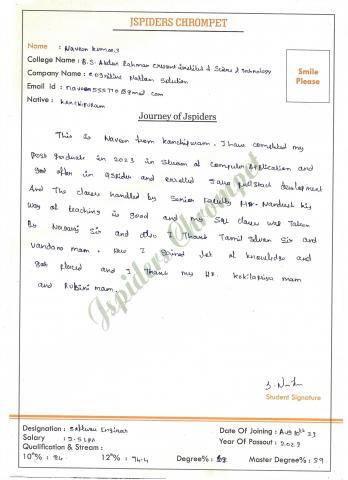 JSPIDERS CHROMPET
Name : Naveen Kumar.S
College Name : B.S. Abdur Rahman Crescent Institute of Science & Technology
Company Name : Solution
Email Id :
Native : Kanchipuram
Smile
Please
Journey of Jspiders
This is Naveen from Kanchipuram. I have completed my
post graduate in 2023 in Stream of Computer Application and
got offer in QSpider and enrolled Java FullStack development
And The classes handled by Senior Faculty Mr. his
way of teaching is good and my Sql classes was Taken
By Nagaraj Sir and also I Thank Tamil Selvan Sir and
Vandana mam. Now I Gained lot of knowledge and
got placed and I Thank my Hr. Kokilapriya mam
and Rubini mam.
Jspiders Chrompet
Student Signature
Designation : Software Engineer
Salary : 3.5 LPA
Qualification & Stream :
10th% : 84 12th% : 74.4 Degree% :
Date Of Joining : Aug 23
Year Of Passout : 2023
Master Degree% : 89